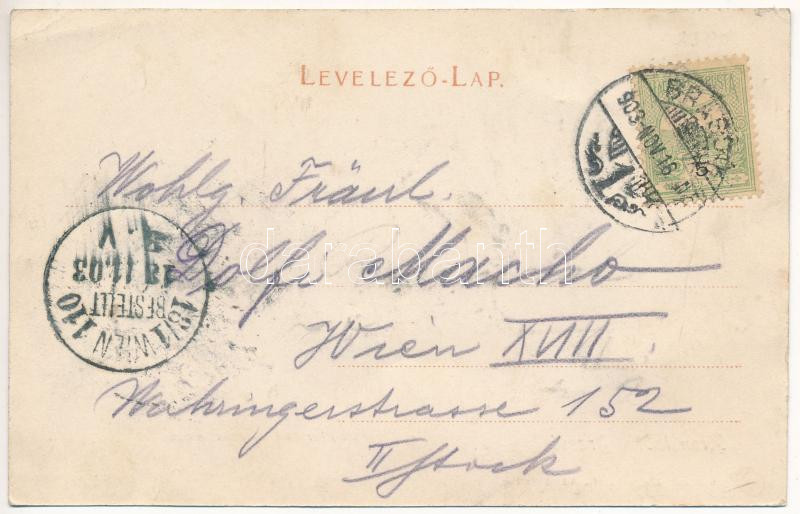 LEVELEZŐ-LAP.
BRASSÓ
903 NOV 16
Wohlg. Fräul.
Dolfi Macho
Wien XVIII.
Währingerstrasse 152
II Stock
18/1 WIEN 110
BESTELLT
18.11.03
darabanth